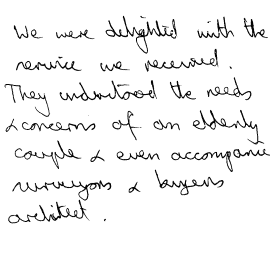 We were delighted with the
service we received.
They understood the needs
& concerns of an elderly
couple & even accompanie
surveyors & buyers
architect.